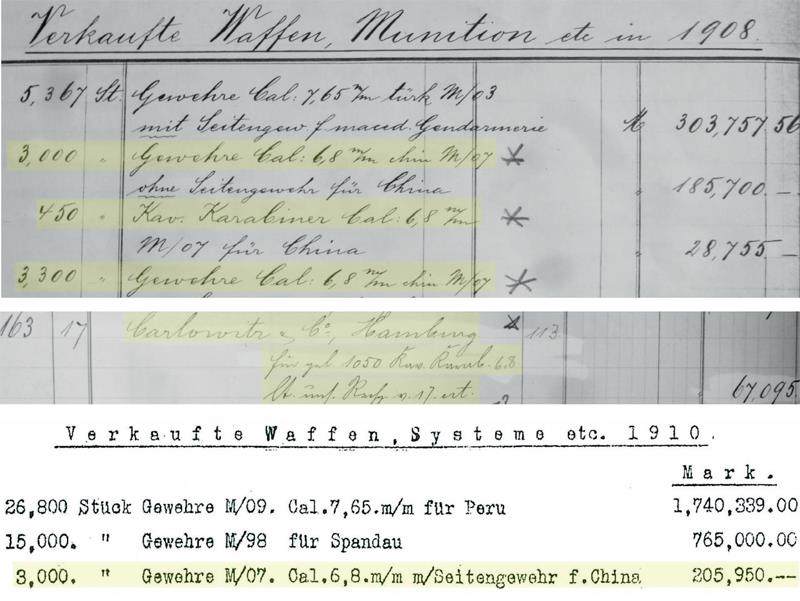 Verkaufte Waffen, Munition etc in 1908.
5,367 St. Gewehre Cal: 7,65 m/m türk M/03
mit Seitengew. f. maced. Gendarmerie M 303,757 56
3,000 " Gewehre Cal: 6,8 m/m chin M/07
ohne Seitengewehr für China " 185,700.—
450 " Kav. Karabiner Cal: 6,8 m/m
M/07 für China " 28,755.—
3,300 " Gewehre Cal: 6,8 m/m chin M/07
163 17 Carlowitz & Co, Hamburg 113
für gel. 1050 Kav. Karab. 6,8
lt. uns. Rech. v. 17. 67,095
Verkaufte Waffen, Systeme etc. 1910.
Mark.
26,800 Stück Gewehre M/09. Cal.7,65.m/m für Peru 1,740,339.00
15,000. " Gewehre M/98 für Spandau 765,000.00
3,000. " Gewehre M/07. Cal.6,8.m/m m/Seitengewehr f.China 205,950.--